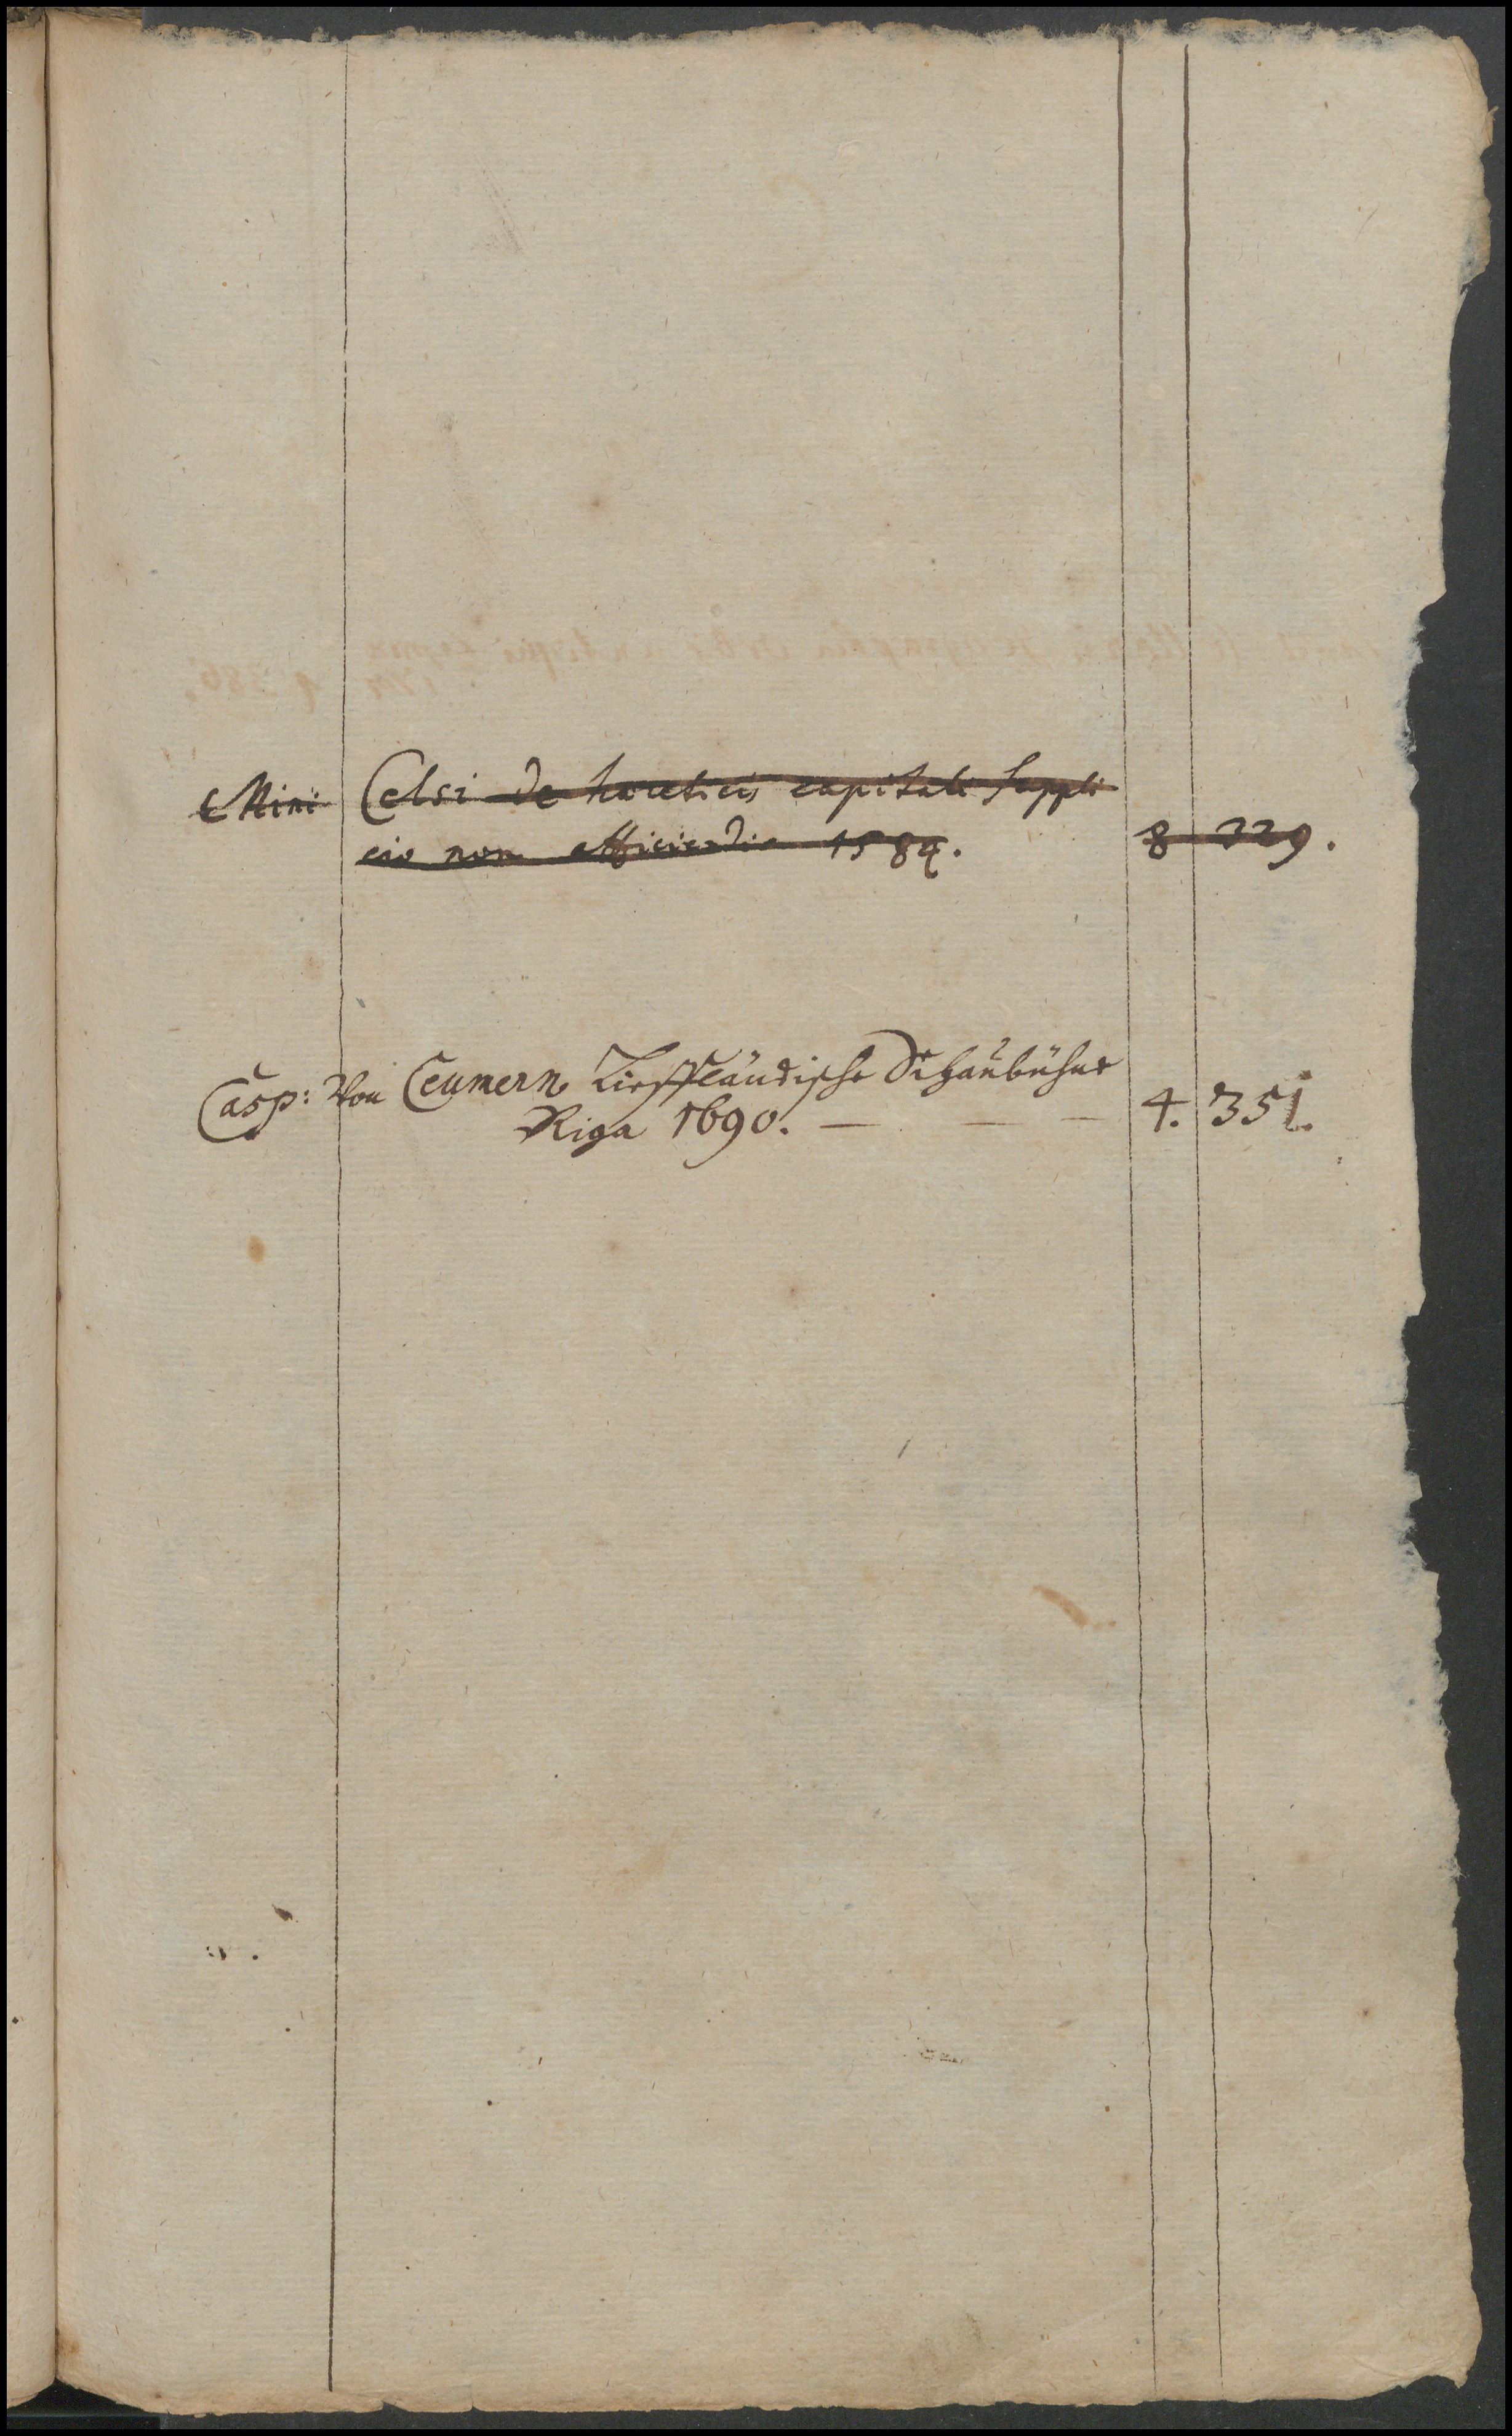 Mini Celsi de haereticis capitali suppli
cio non afficiendis 1584. 8 229.
Casp: Von Ceumern Liefländische Schaubühne
Riga 1690. — — 4. 351.